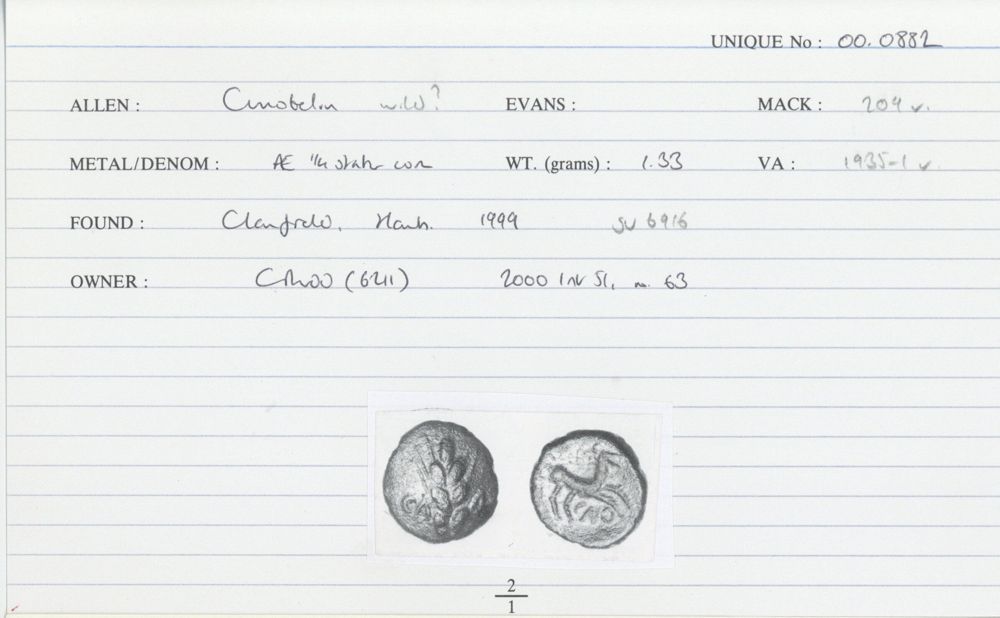 UNIQUE No : 00.0882
ALLEN : Cunobelin wild? EVANS : MACK : 204 v.
METAL/DENOM : Æ 1/4 stater core WT. (grams) : 1.33 VA : 1935-1 v.
FOUND : Clanfield, Hants. 1999 SU 6916
OWNER : CR00 (6211) 2000 Inv 51, no. 63
CA
CNO
2
1